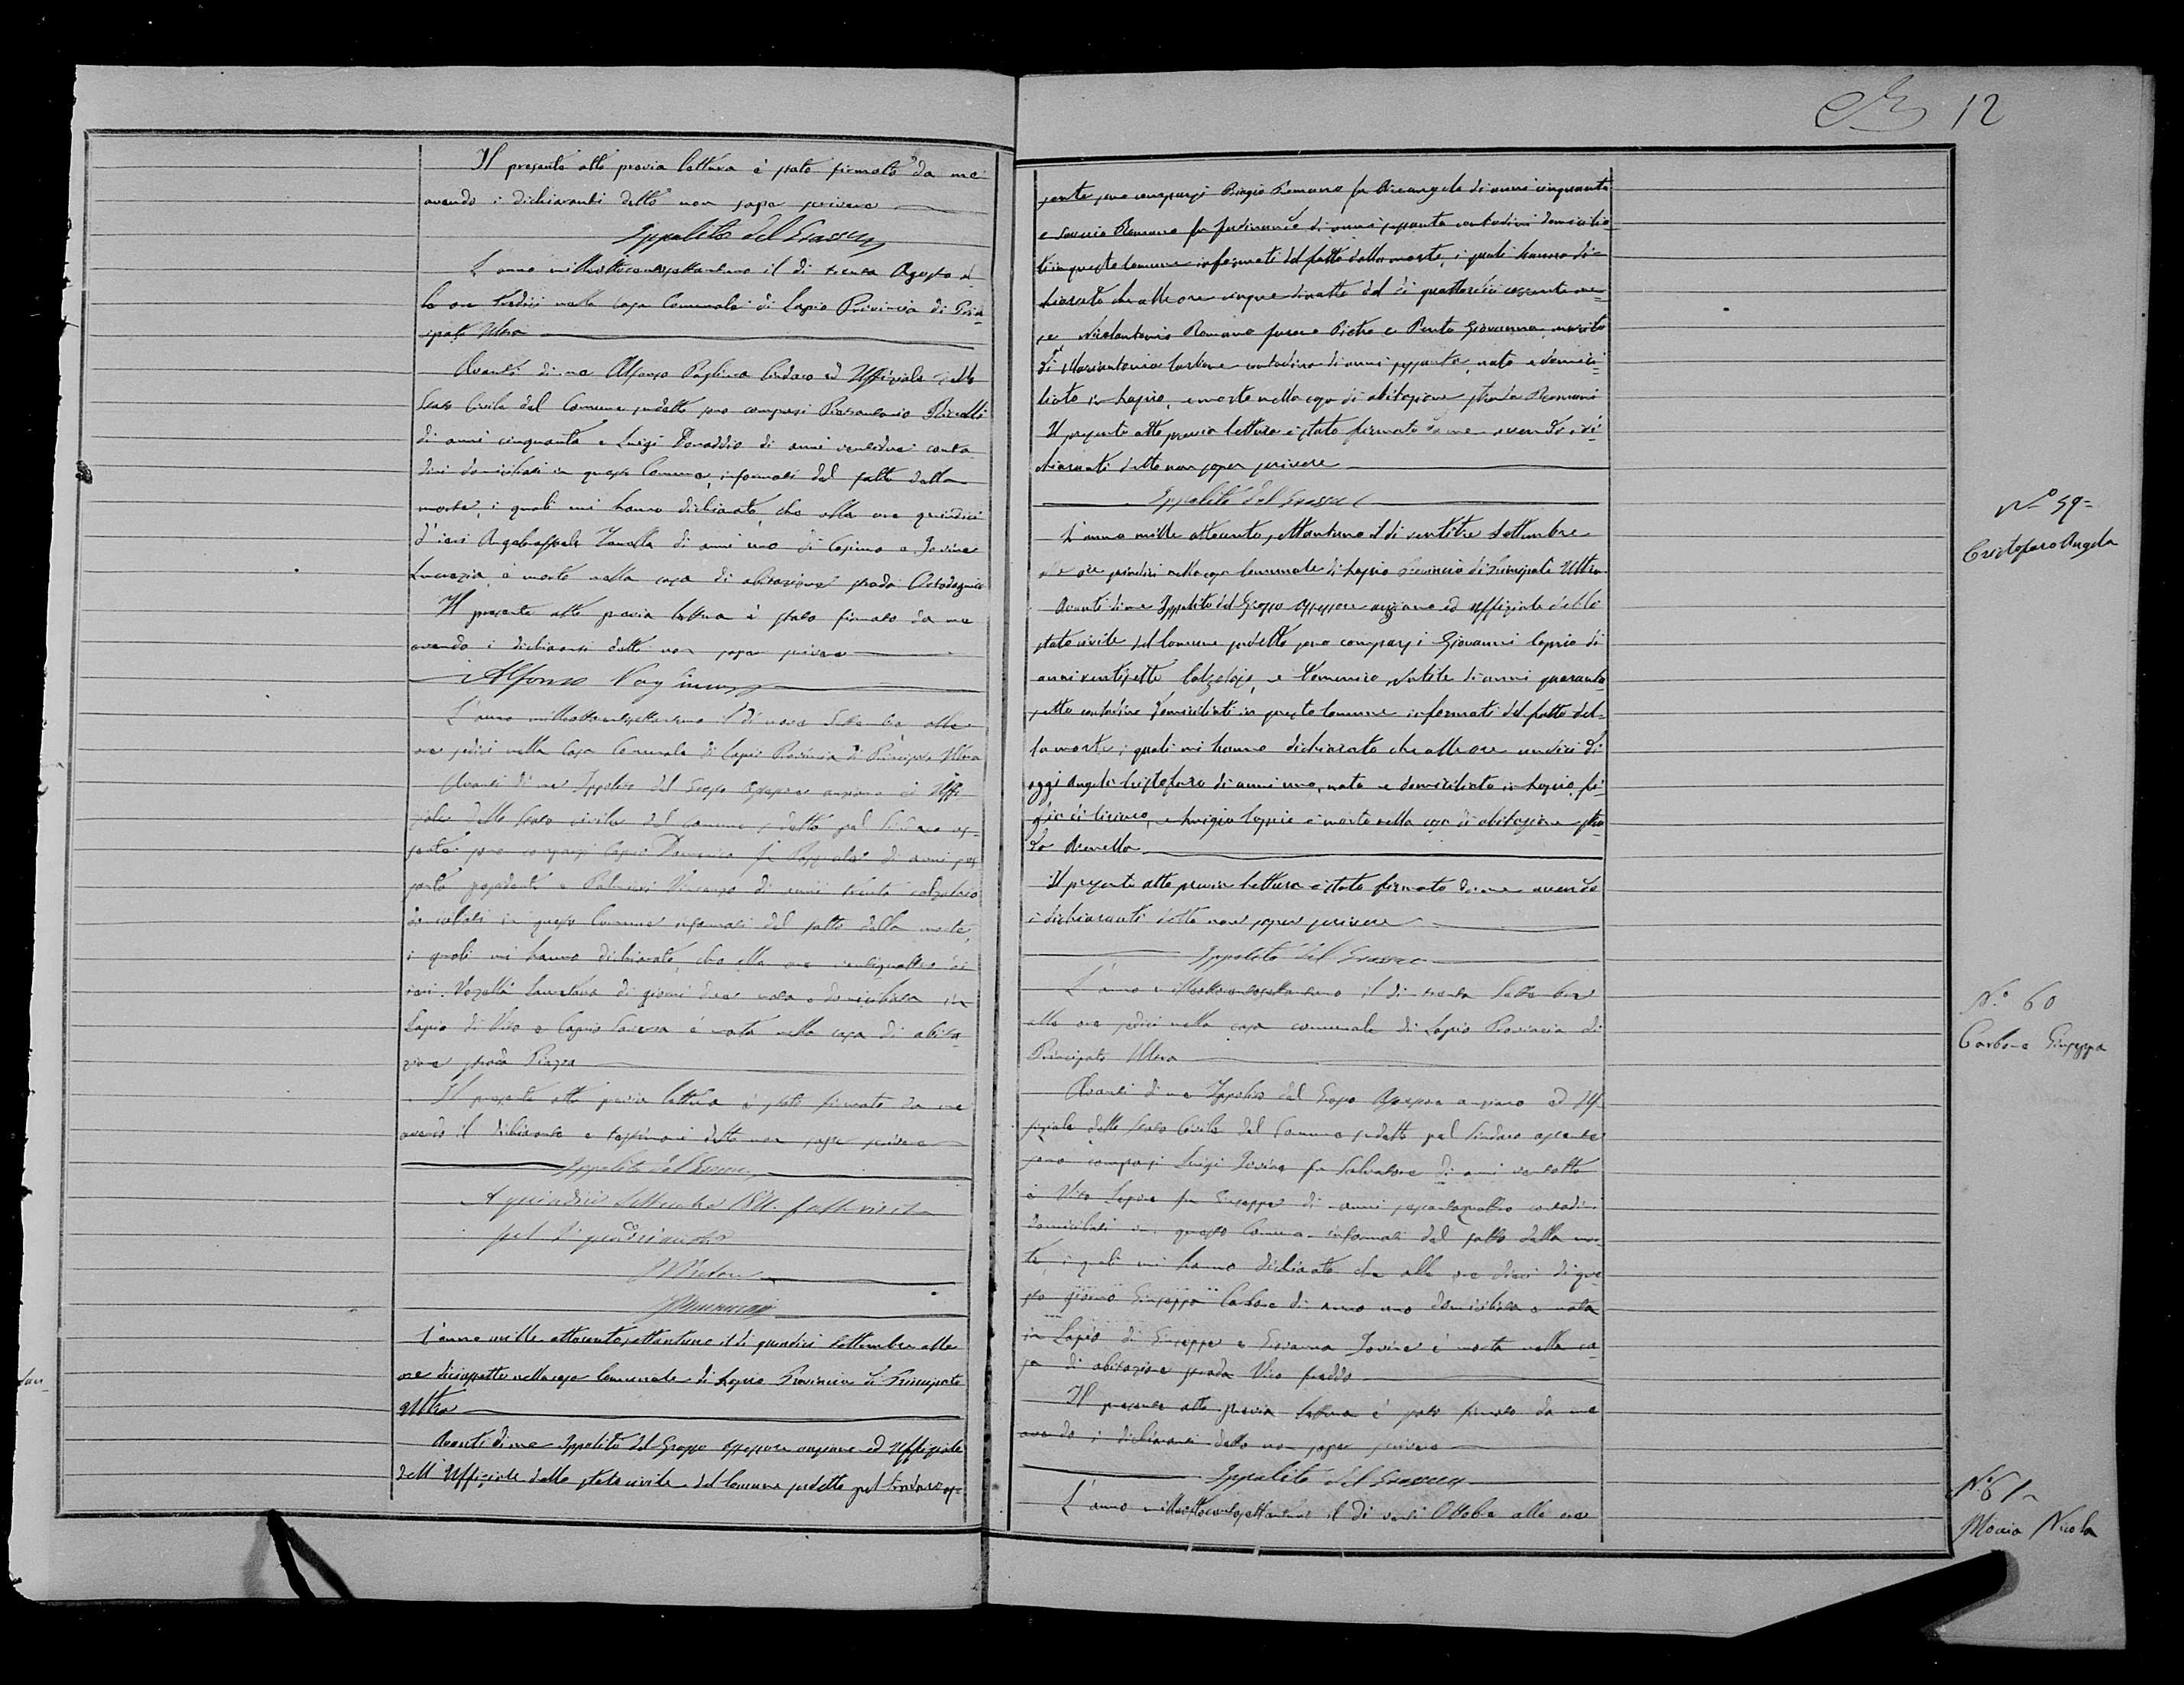 12
Il presente atto previa lettura è stato firmato da me
avendo i dichiaranti detto non saper scrivere
Ippolito del Grosso
L'anno milleottocentosettantuno il dì trenta Agosto al
le ore tredici nella casa Comunale di Lapio Provincia di Prin
cipato Ultra
Avanti di me Alfonso Sindaco ed Uffiziale dello
Stato Civile del Comune sudetto sono comparsi
di anni cinquanta e Luigi di anni ventidue conta
dini domiciliati in questo Comune, informati del fatto della
morte, i quali mi hanno dichiarato, che alle ore quindici
d'ieri di anni uno di e Iovine
Lucrezia, è morta nella casa di abitazione strada
Il presente atto previa lettura è stato firmato da me
avendo i dichiaranti detto non saper scrivere
Alfonso
L'anno milleottocentosettantuno il dì nove Settembre, alle
ore sedici nella Casa Comunale di Lapio Provincia di Principato Ultra
Avanti di me Ippolito del Grosso Assessore anziano ed Uffi
ziale dello Stato civile del Comune sudetto pel Sindaco as-
sente sono comparsi Caprio Domenico fu Pasquale di anni ses
santa possidente e Vincenzo di anni trenta calzolaio
domiciliati in questo Comune informati del fatto della morte,
i quali mi hanno dichiarato, che alle ore ventiquattro di
ieri di giorni due nata e domiciliata in
Lapio di Vito e Caprio è morta nella casa di abita-
zione strada Piazza
Il presente atto previa lettura è stato firmato da me
avendo il dichiarante e testimoni detto non saper scrivere
Ippolito del Grosso
A quindici Settembre 1871
pel
L'anno mille ottocento settantuno il dì quindici Settembre alle
ore diciassette nella casa Comunale di Lapio Provincia di Principato
Ultra
Avanti di me Ippolito del Grosso Assessore anziano ed Uffiziale
dell'Uffiziale dello stato civile del Comune sudetto pel Sindaco as-
sente, sono comparsi Biagio Romano fu Arcangelo di anni cinquanta
e Romano fu Ferdinando di anni sessanta contadini domicilia
ti in questo Comune informati del fatto della morte, i quali hanno di-
chiarato che alle ore cinque di notte del dì quattordici corrente me-
se Nicolantonio Romano furono Pietro e Giovanna, marito
di Mariantonia Carbone contadino di anni sessanta, nato e domici-
liato in Lapio, è morto nella casa di abitazione strada Romani
Il presente atto previa lettura è stato firmato da me avendo i di-
chiaranti detto non saper scrivere
Ippolito del Grosso
Nº 59=
Cristofaro Angela
L'anno mille ottocento settantuno il dì ventitre Settembre
alle ore quindici nella casa Comunale di Lapio Provincia di Principato Ultra
Avanti di me Ippolito del Grosso Assessore anziano ed Uffiziale dello
stato civile del Comune sudetto sono comparsi Giovanni Caprio di
anni ventisette Calzolajo, e Domenico di anni quaranta
sette contadino domiciliati in questo Comune informati del fatto del-
la morte, i quali mi hanno dichiarato che alle ore undici di
oggi Angela Cristofaro di anni uno, nata e domiciliata in Lapio, fi-
glia di e Luigia Caprio è morta nella casa di abitazione stra
da
Il presente atto previa lettura è stato firmato da me avendo
i dichiaranti detto non saper scrivere
Ippolito del Grosso
Nº 60
Carbone Giuseppa
L'anno milleottocentosettantuno il dì trenta Settembre
alle ore sedici nella casa comunale di Lapio Provincia di
Principato Ultra
Avanti di me Ippolito del Grosso Assessore anziano ed Uf-
fiziale dello Stato Civile del Comune sudetto pel Sindaco assente
sono comparsi Luigi Iovine fu Salvatore di anni ventotto
e Vito fu Giuseppe di anni sessantaquattro contadini
domiciliati in questo Comune informati del fatto della mor-
te, i quali mi hanno dichiarato che alle ore dieci di que
sto giorno Giuseppa Carbone di anno uno domiciliata e nata
in Lapio di Giuseppe e Giovanna Iovine è morta nella ca-
sa di abitazione strada Vico freddo
Il presente atto previa lettura è stato firmato da me
avendo i dichiaranti detto non saper scrivere
Ippolito del Grosso
Nº 61
Nicola
L'anno milleottocentosettantuno il dì venti Ottobre alle ore